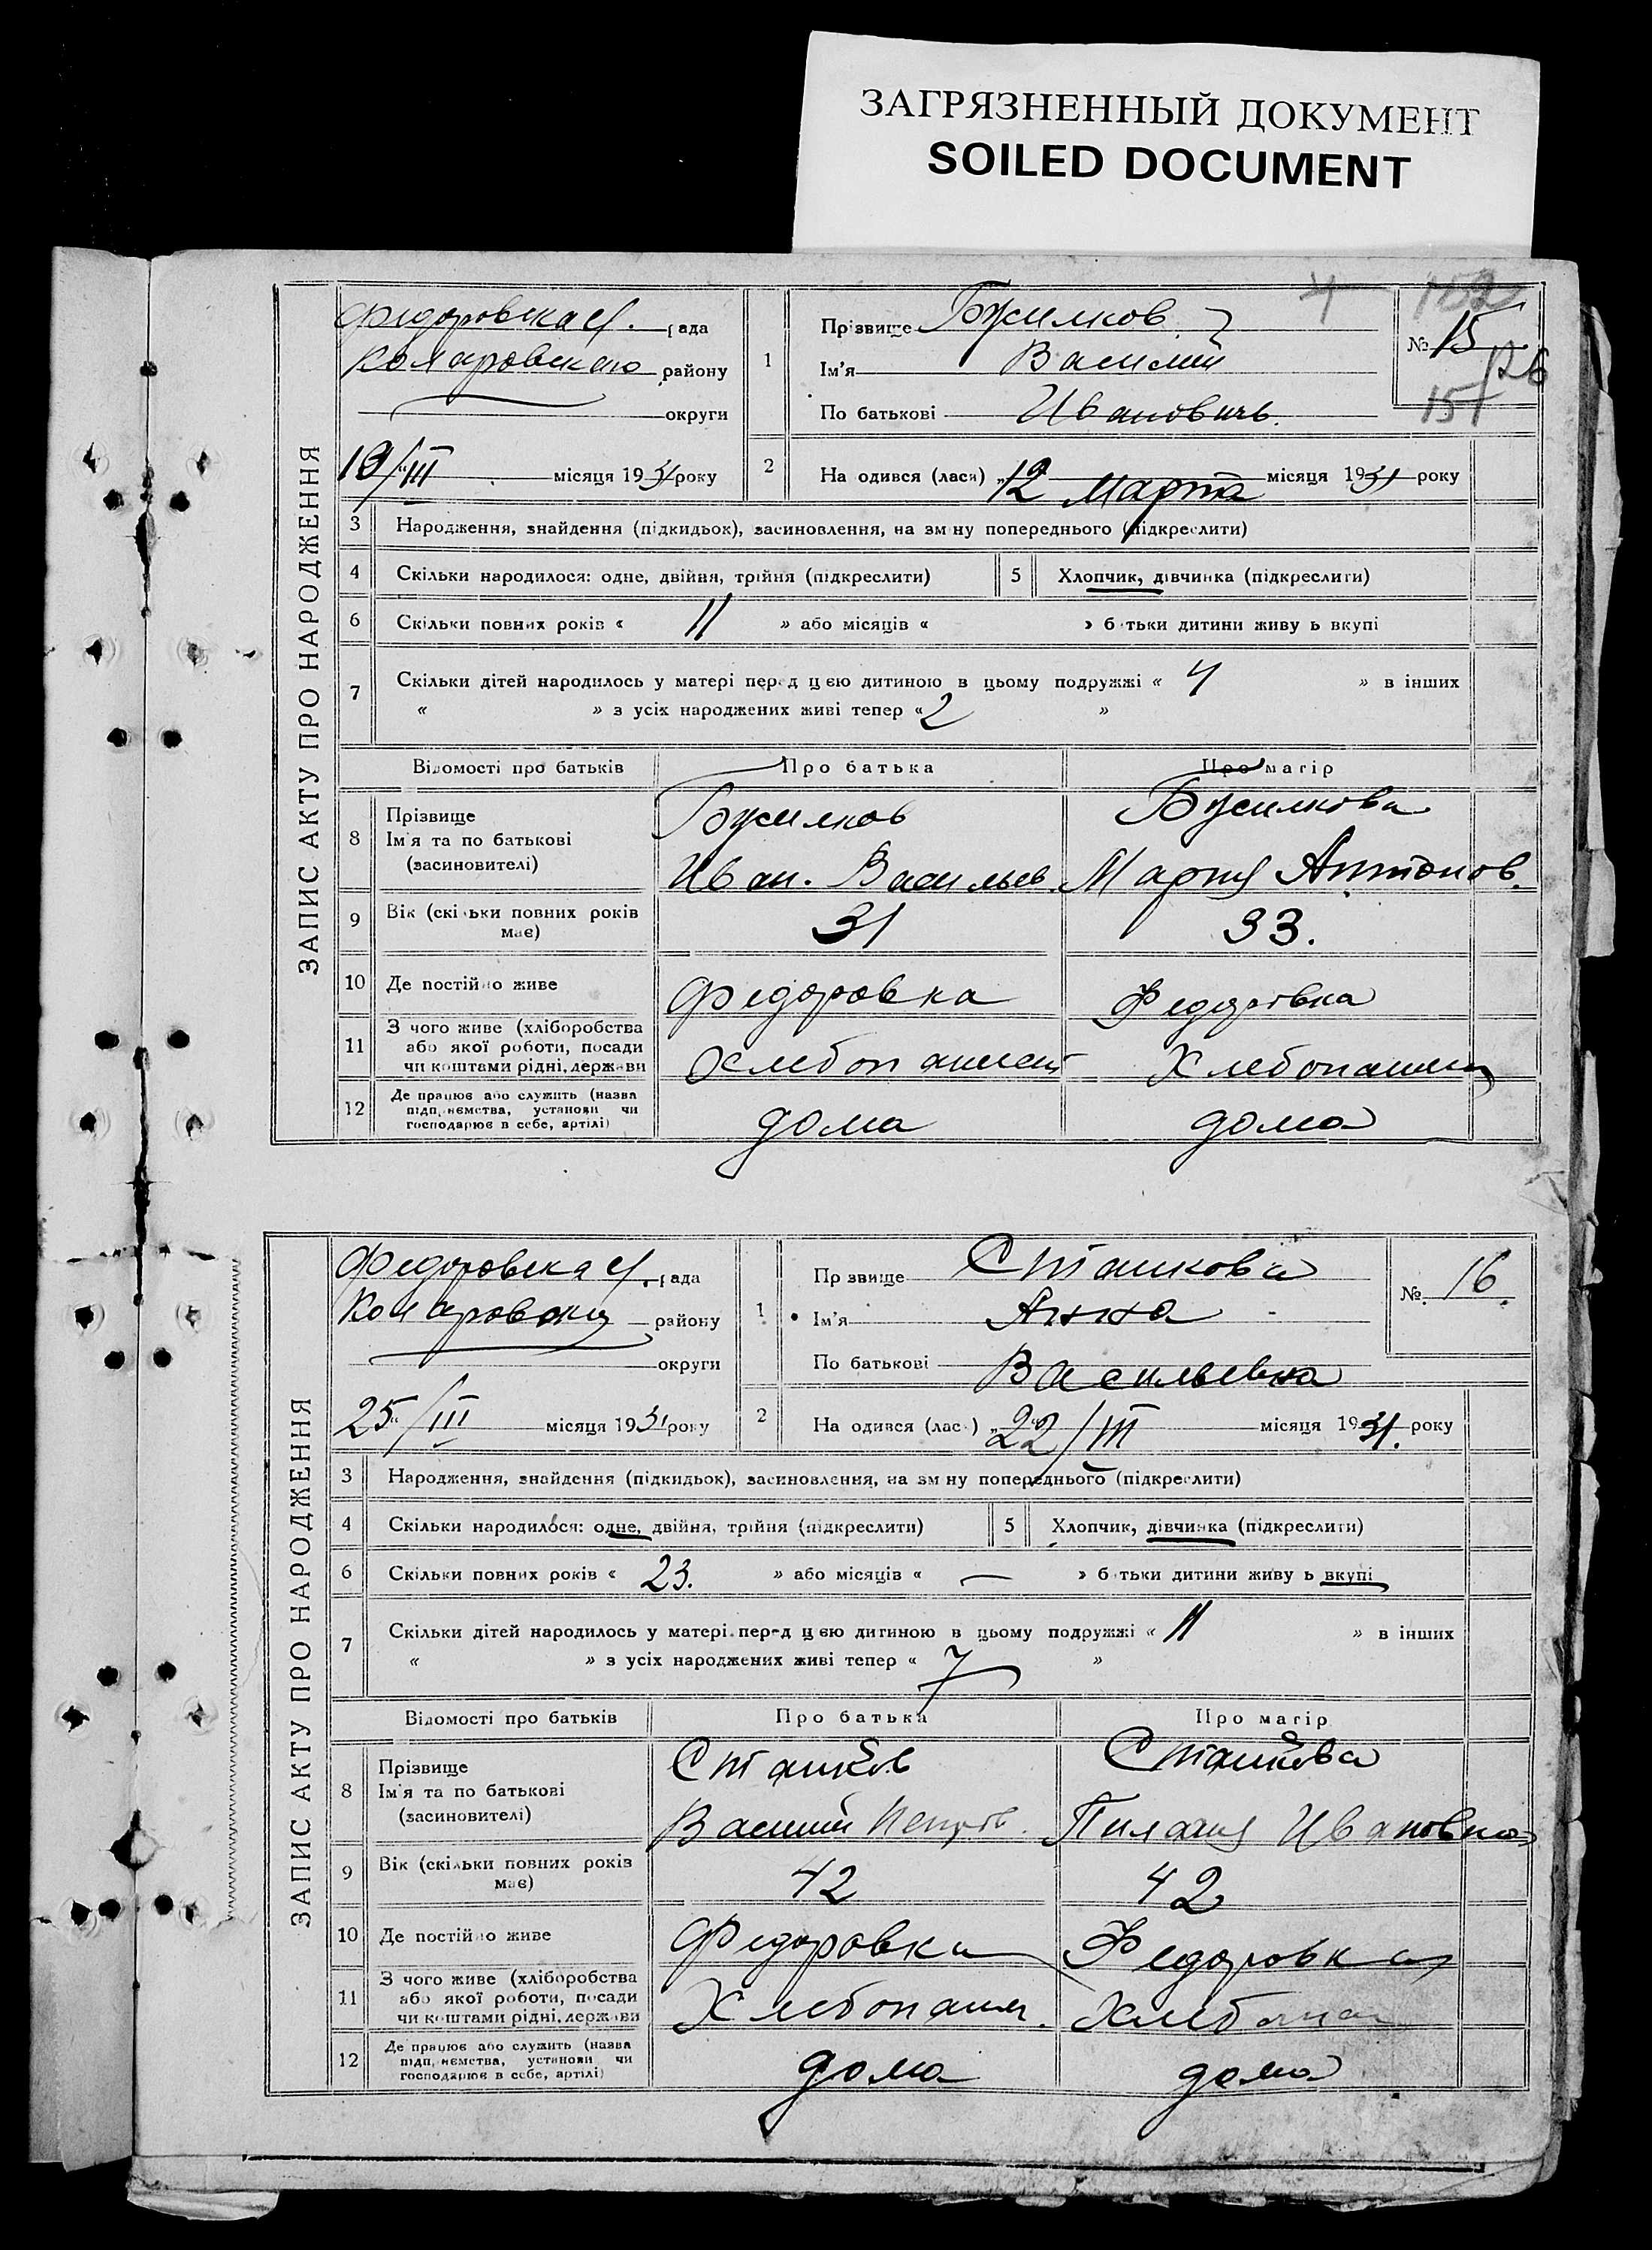 ЗАГРЯЗНЕННЫЙ ДОКУМЕНТ
SOILED DOCUMENT
ЗАПИС АКТУ ПРО НАРОДЖЕННЯ
Федоровская рада
района
округи
19/III місяця 1931 року
1
Прізвище
Ім'я Василий
По батькові Ивановичь.
№ 15
126
157
2
На одився (ласи) „12 Марта місяця 1931 року
3 Народження, знайдення (підкидьок), засиновлення, на зм ну попереднього (підкреслити)
4 Скільки народилося: одне, двійня, трійня (підкреслити) 5 Хлопчик, дівчинка (підкреслити)
6 Скільки повних років « 11 » або місяців « » б тьки дитини живу ь вкупі
7 Скільки дітей народилось у матері перед цією дитиною в цьому подружжі « 4 » в інших
« » з усіх народжених живі тепер « 2 »
Відомості про батьків Про батька Про матір
8 Прізвище
Ім'я та по батькові
(засиновителі)
Иван. Васильев. Мария Антонов.
9 Вік (скільки повних років має) 31 33.
10 Де постійно живе Федоровка Федоровка
11 З чого живе (хліборобства
або якої роботи, посади
чи коштами рідні, держави
Хлебопашест Хлебопашец
12 Де працює або служить (назва
підприємства, установи чи
господарює в себе, артілі)
дома дома
ЗАПИС АКТУ ПРО НАРОДЖЕННЯ
Федоровская рада
району
округи
25/III місяця 1931 року
1
Пр звище Сташкова
Ім'я Анна
По батькові Васильевна
№ 16.
2
На одився (лас ) „22/III місяця 1931. року
3 Народження, знайдення (підкидьок), засиновлення, на зм ну попереднього (підкреслити)
4 Скільки народилося: одне, двійня, трійня (підкреслити) 5 Хлопчик, дівчинка (підкреслити)
6 Скільки повних років « 23. » або місяців « — » б тьки дитини живу ь вкупі
7 Скільки дітей народилось у матері перед цією дитиною в цьому подружжі « 11 » в інших
« » з усіх народжених живі тепер « 7 »
Відомості про батьків Про батька Про матір
8 Прізвище
Ім'я та по батькові
(засиновителі)
Сташков Сташкова
Василий Петров. Пилагия Ивановна
9 Вік (скільки повних років має) 42 42
10 Де постійно живе Федоровка Федоровка
11 З чого живе (хліборобства
або якої роботи, посади
чи коштами рідні, держави
Хлебопаш. Хлебопа
12 Де працює або служить (назва
підприємства, установи чи
господарює в себе, артілі)
дома дома